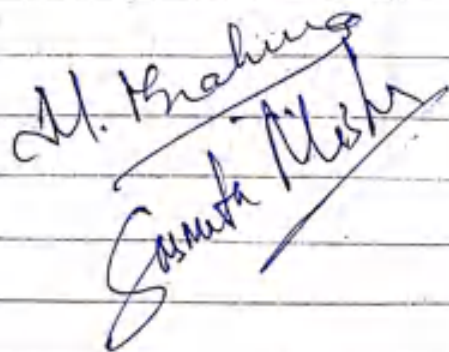 M. Ibrahim
Sasmita Mishr